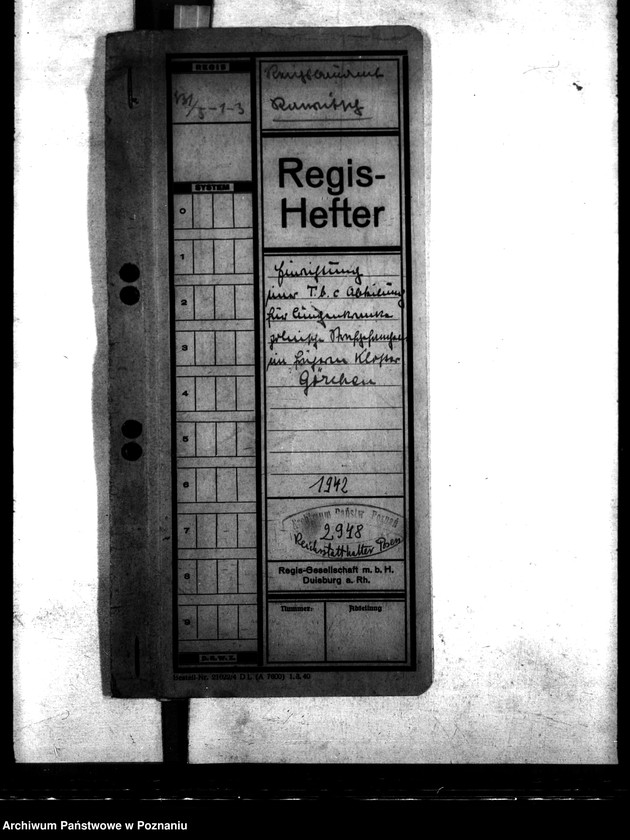 REGIS
VII/5-1-3
Rawitsch
Regis-
Hefter
SYSTEM
0
1
2
3
4
5
6
7
8
9
Einrichtung
einer T.b.c Abteilung
für lungenkranke
polnische Strafgefangene
im früheren Kloster
Görchen
1942
Archiwum Państw. Poznań
2978
Reichsstatthalter Posen
Regis-Gesellschaft m. b. H.
Duisburg a. Rh.
Nummer:
Abteilung
D.R.W.Z.
(A 7600) 1.8.40
Archiwum Państwowe w Poznaniu